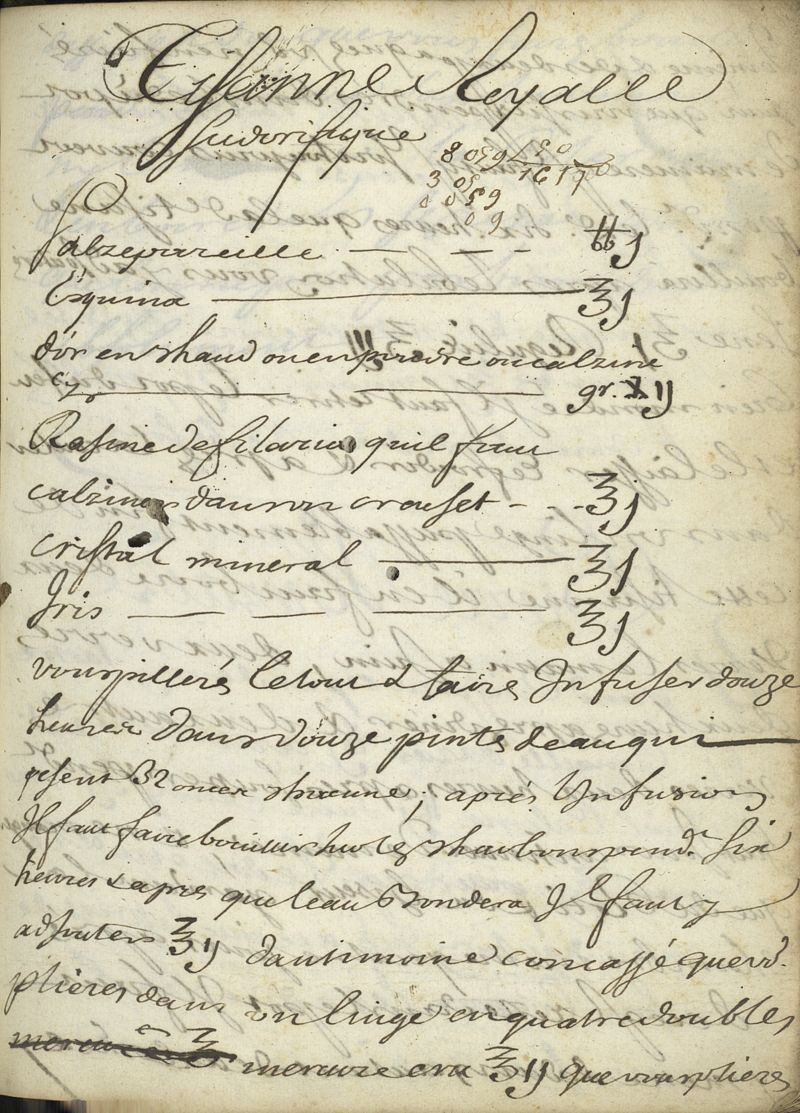 Tisanne Royalle
sudorifique
8059 / 50
3 05 1617
0 059
0 9
Salzepareille — — - ℔ j
Esquina — ℥ j
d'or en chaud ou en poudre ou calzine
cy — gr. xij
Rasine de filaria quil faut
calziner dans un creuset - - - ℥ j
cristal mineral — ℥ j
Iris — — — ℥ j
vous pillerés le tout & faires Infuser douze
heures dans douze pintes deau qui
pesent 32 onces chacune; aprés l'Infusion
Il faut faire bouillir sur les charbons pend.t six
heures & apres que leau Il faut y
adjouter ℥ ij dantimoine concassé que v.s
plieres dans un linge en quatre doubles
mercure cru ℥ ij que vous plieres